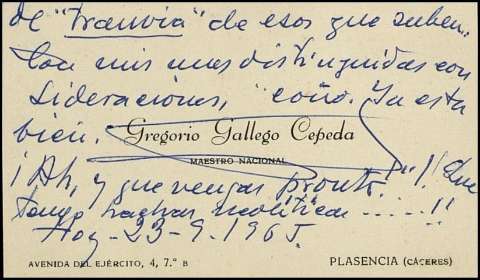 de "tranvia" de esos que suben.
Con mis mas distinguidas con
sideraciones, "coño. Ya esta
bien.
Gregorio Gallego Cepeda
MAESTRO NACIONAL
¡Ah, y que vengas pronto."!! Que
tengo hachas neolíticas .....!!
Hoy-23-9-1965.
AVENIDA DEL EJÉRCITO, 4, 7.º B
PLASENCIA (CÁCERES)